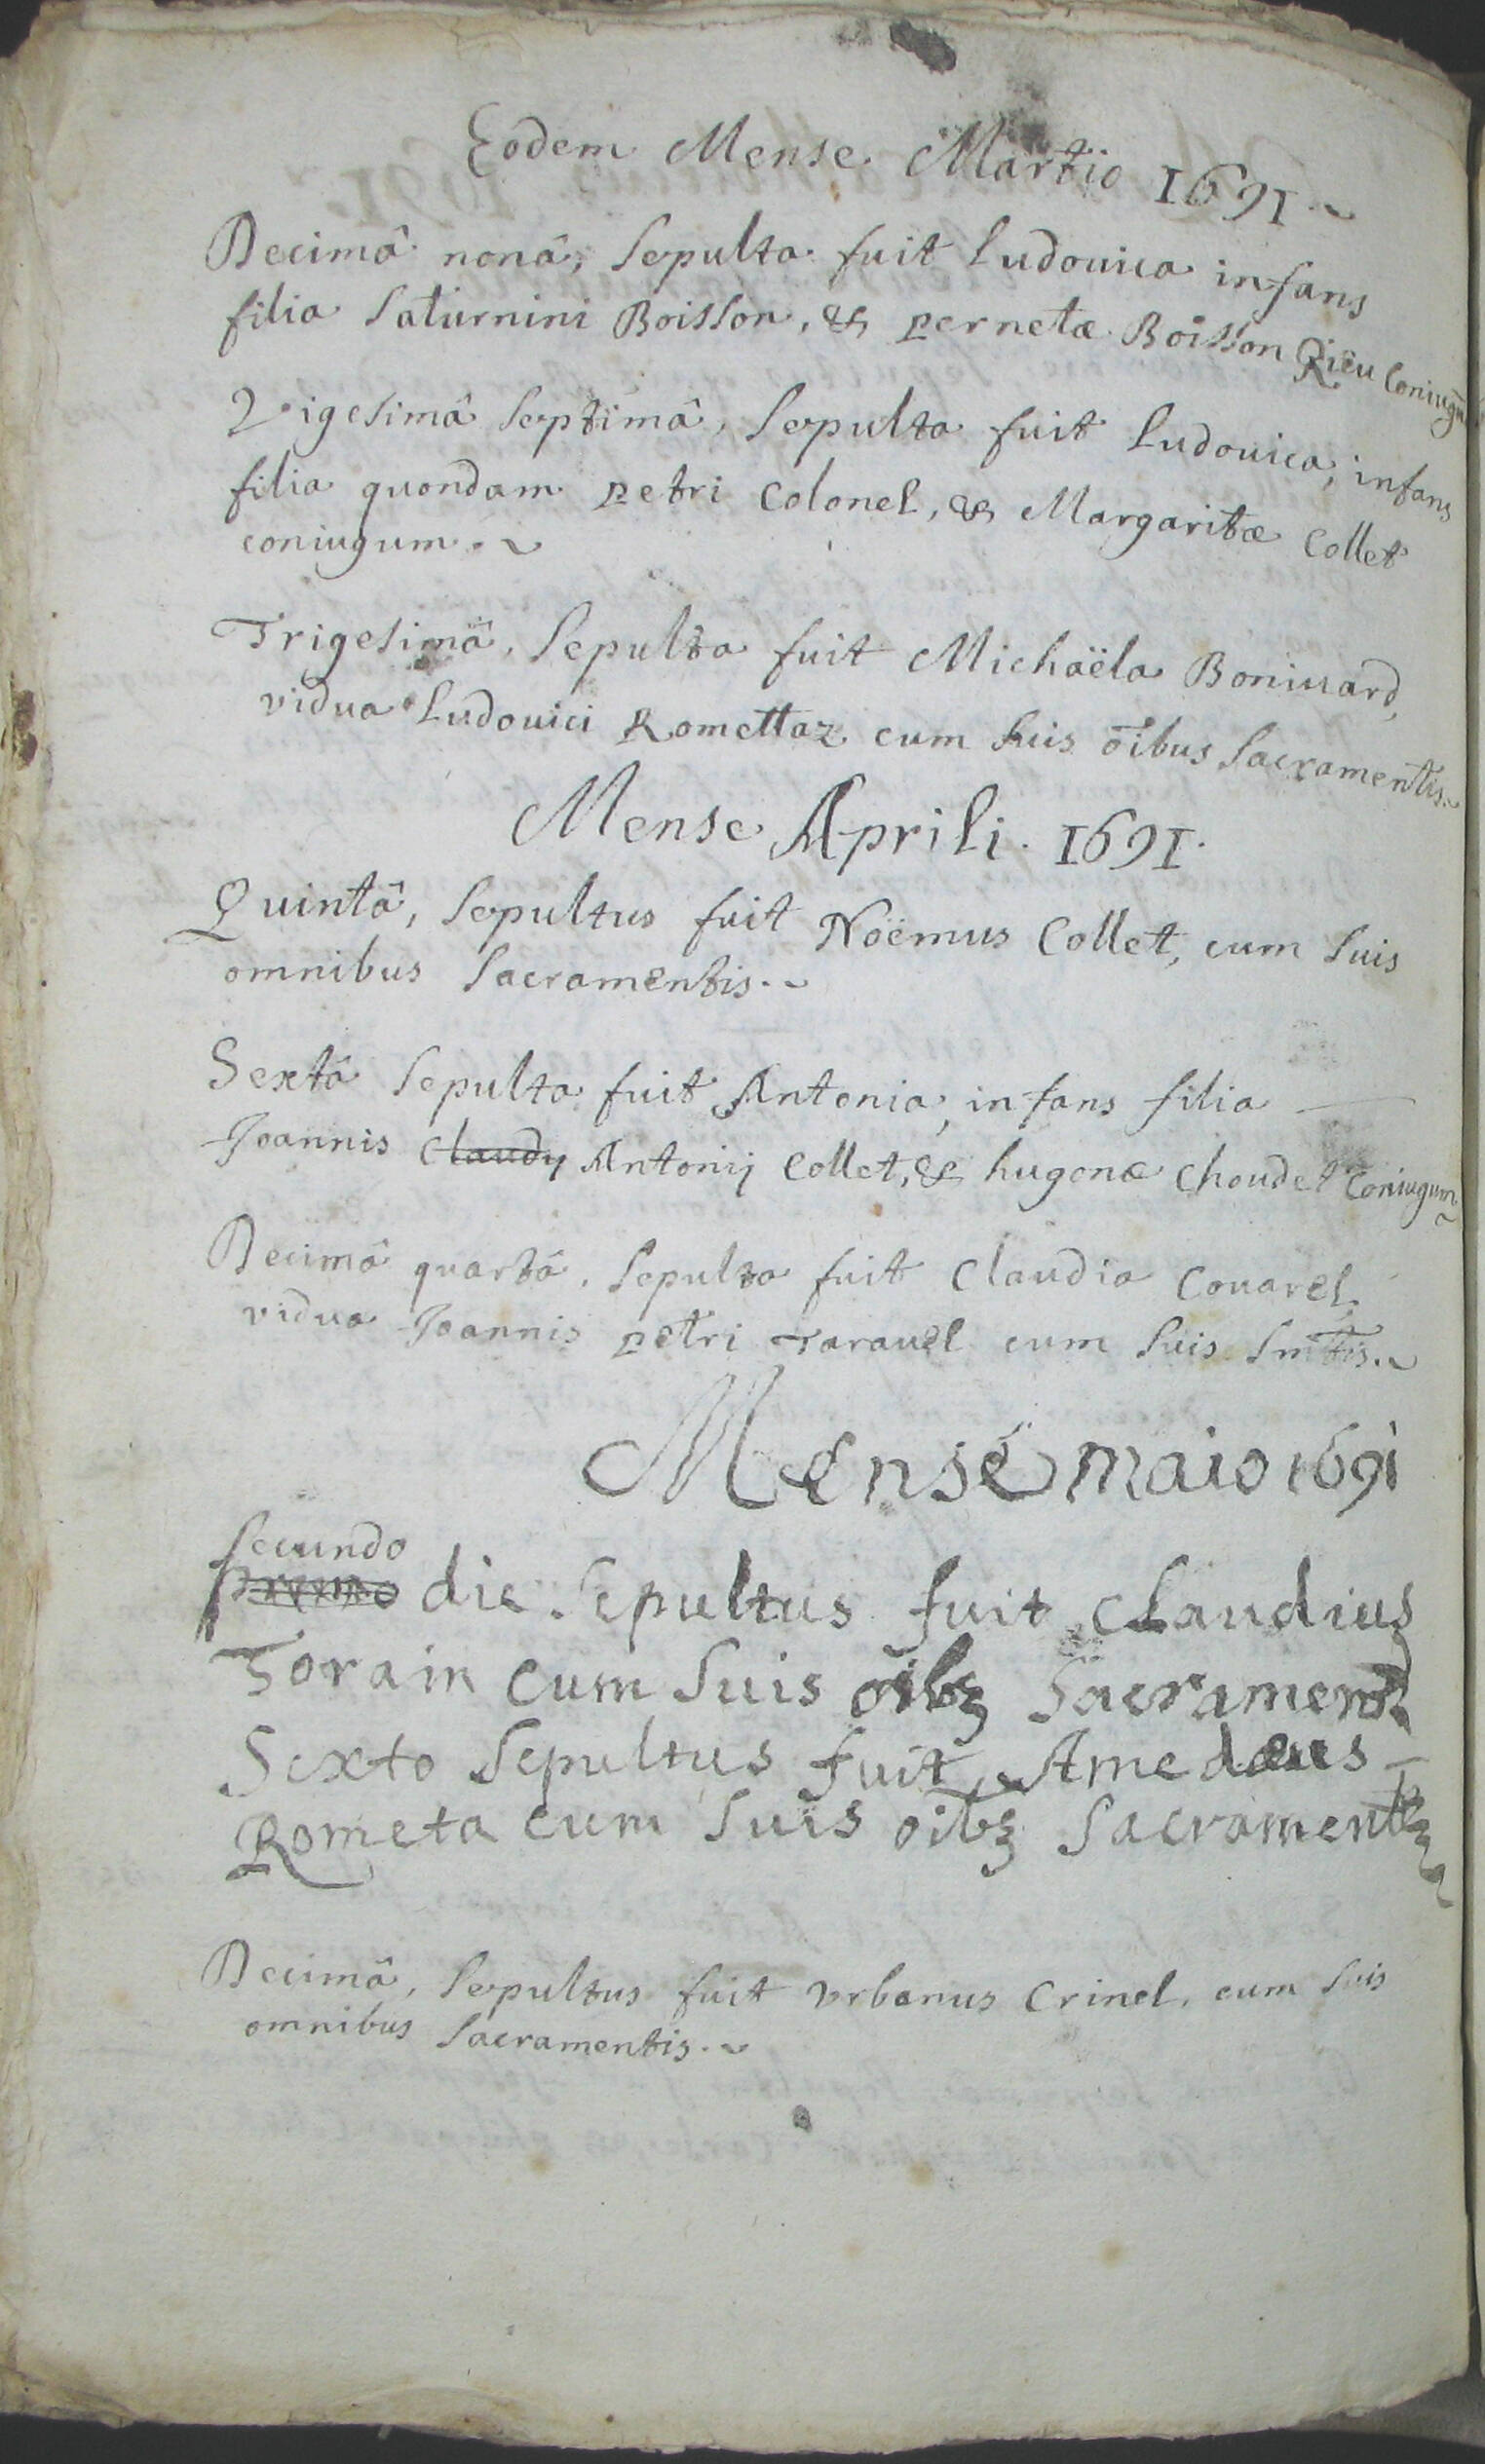 Eodem Mense Martio 1691.~
Decimâ nonâ, Sepulta fuit Ludouica infans
filia Saturnini Boisson, & pernetæ Boisson Rieu Coniugū
Vigesimâ Septimâ, Sepulta fuit Ludouica, infans
filia quondam petri Colonel, & Margaritæ Collet
coniugum.~
Trigesimâ, Sepulta fuit Michaëla Boniuard,
vidua Ludouici Romettaz cum suis oībus Sacramentis.~
Mense Aprili. 1691.
Quintâ, Sepultus fuit Noëmus Collet, cum suis
omnibus Sacramentis.~
Sextâ Sepulta fuit Antonia, infans filia —
Joannis Claudij Antonij Collet, & hugonæ Choudet Coniugum~
Decimâ quartâ, Sepulta fuit Claudia Couarel,
vidua Joannis petri Tarauel cum suis Smtis.~
Mense maio 1691
Secundo
primo die Sepultus fuit Claudius
Torain cum suis oibȝ Sacrament
Sexto Sepultus fuit Amedæus —
Rometa cum suis oibȝ Sacrament
Decimâ, Sepultus fuit vrbanus Crinel, cum suis
omnibus Sacramentis.~